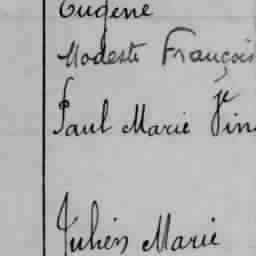 Eugène
Modeste François
Paul Marie Vin
Julien Marie